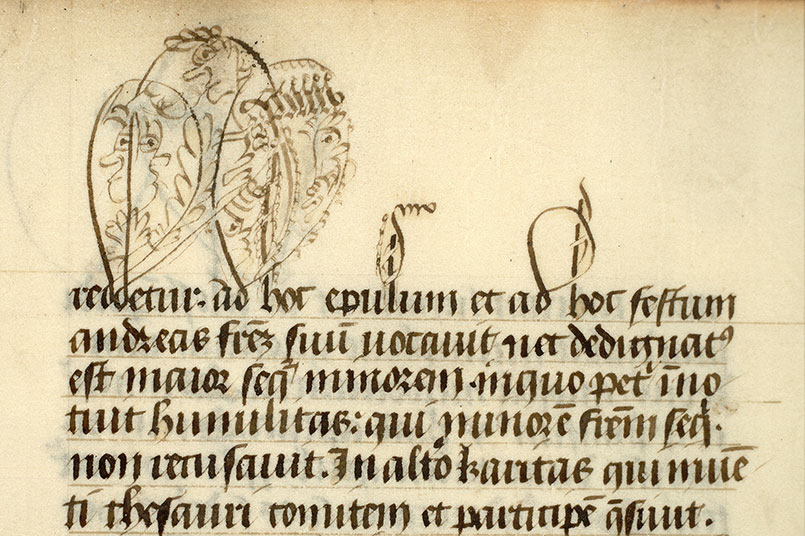 reuetur. ad hoc epulum et ad hoc festum
andreas frēz suū uocauit nec dedignatꝰ
est maior seq̄ minorem. in quo pet̉ īno
tuit humilitas: qui minorē frēm seq̉.
non recusauit. In alto karitas qui inuiē
ti thesauri comitem et participē q̄siuit.